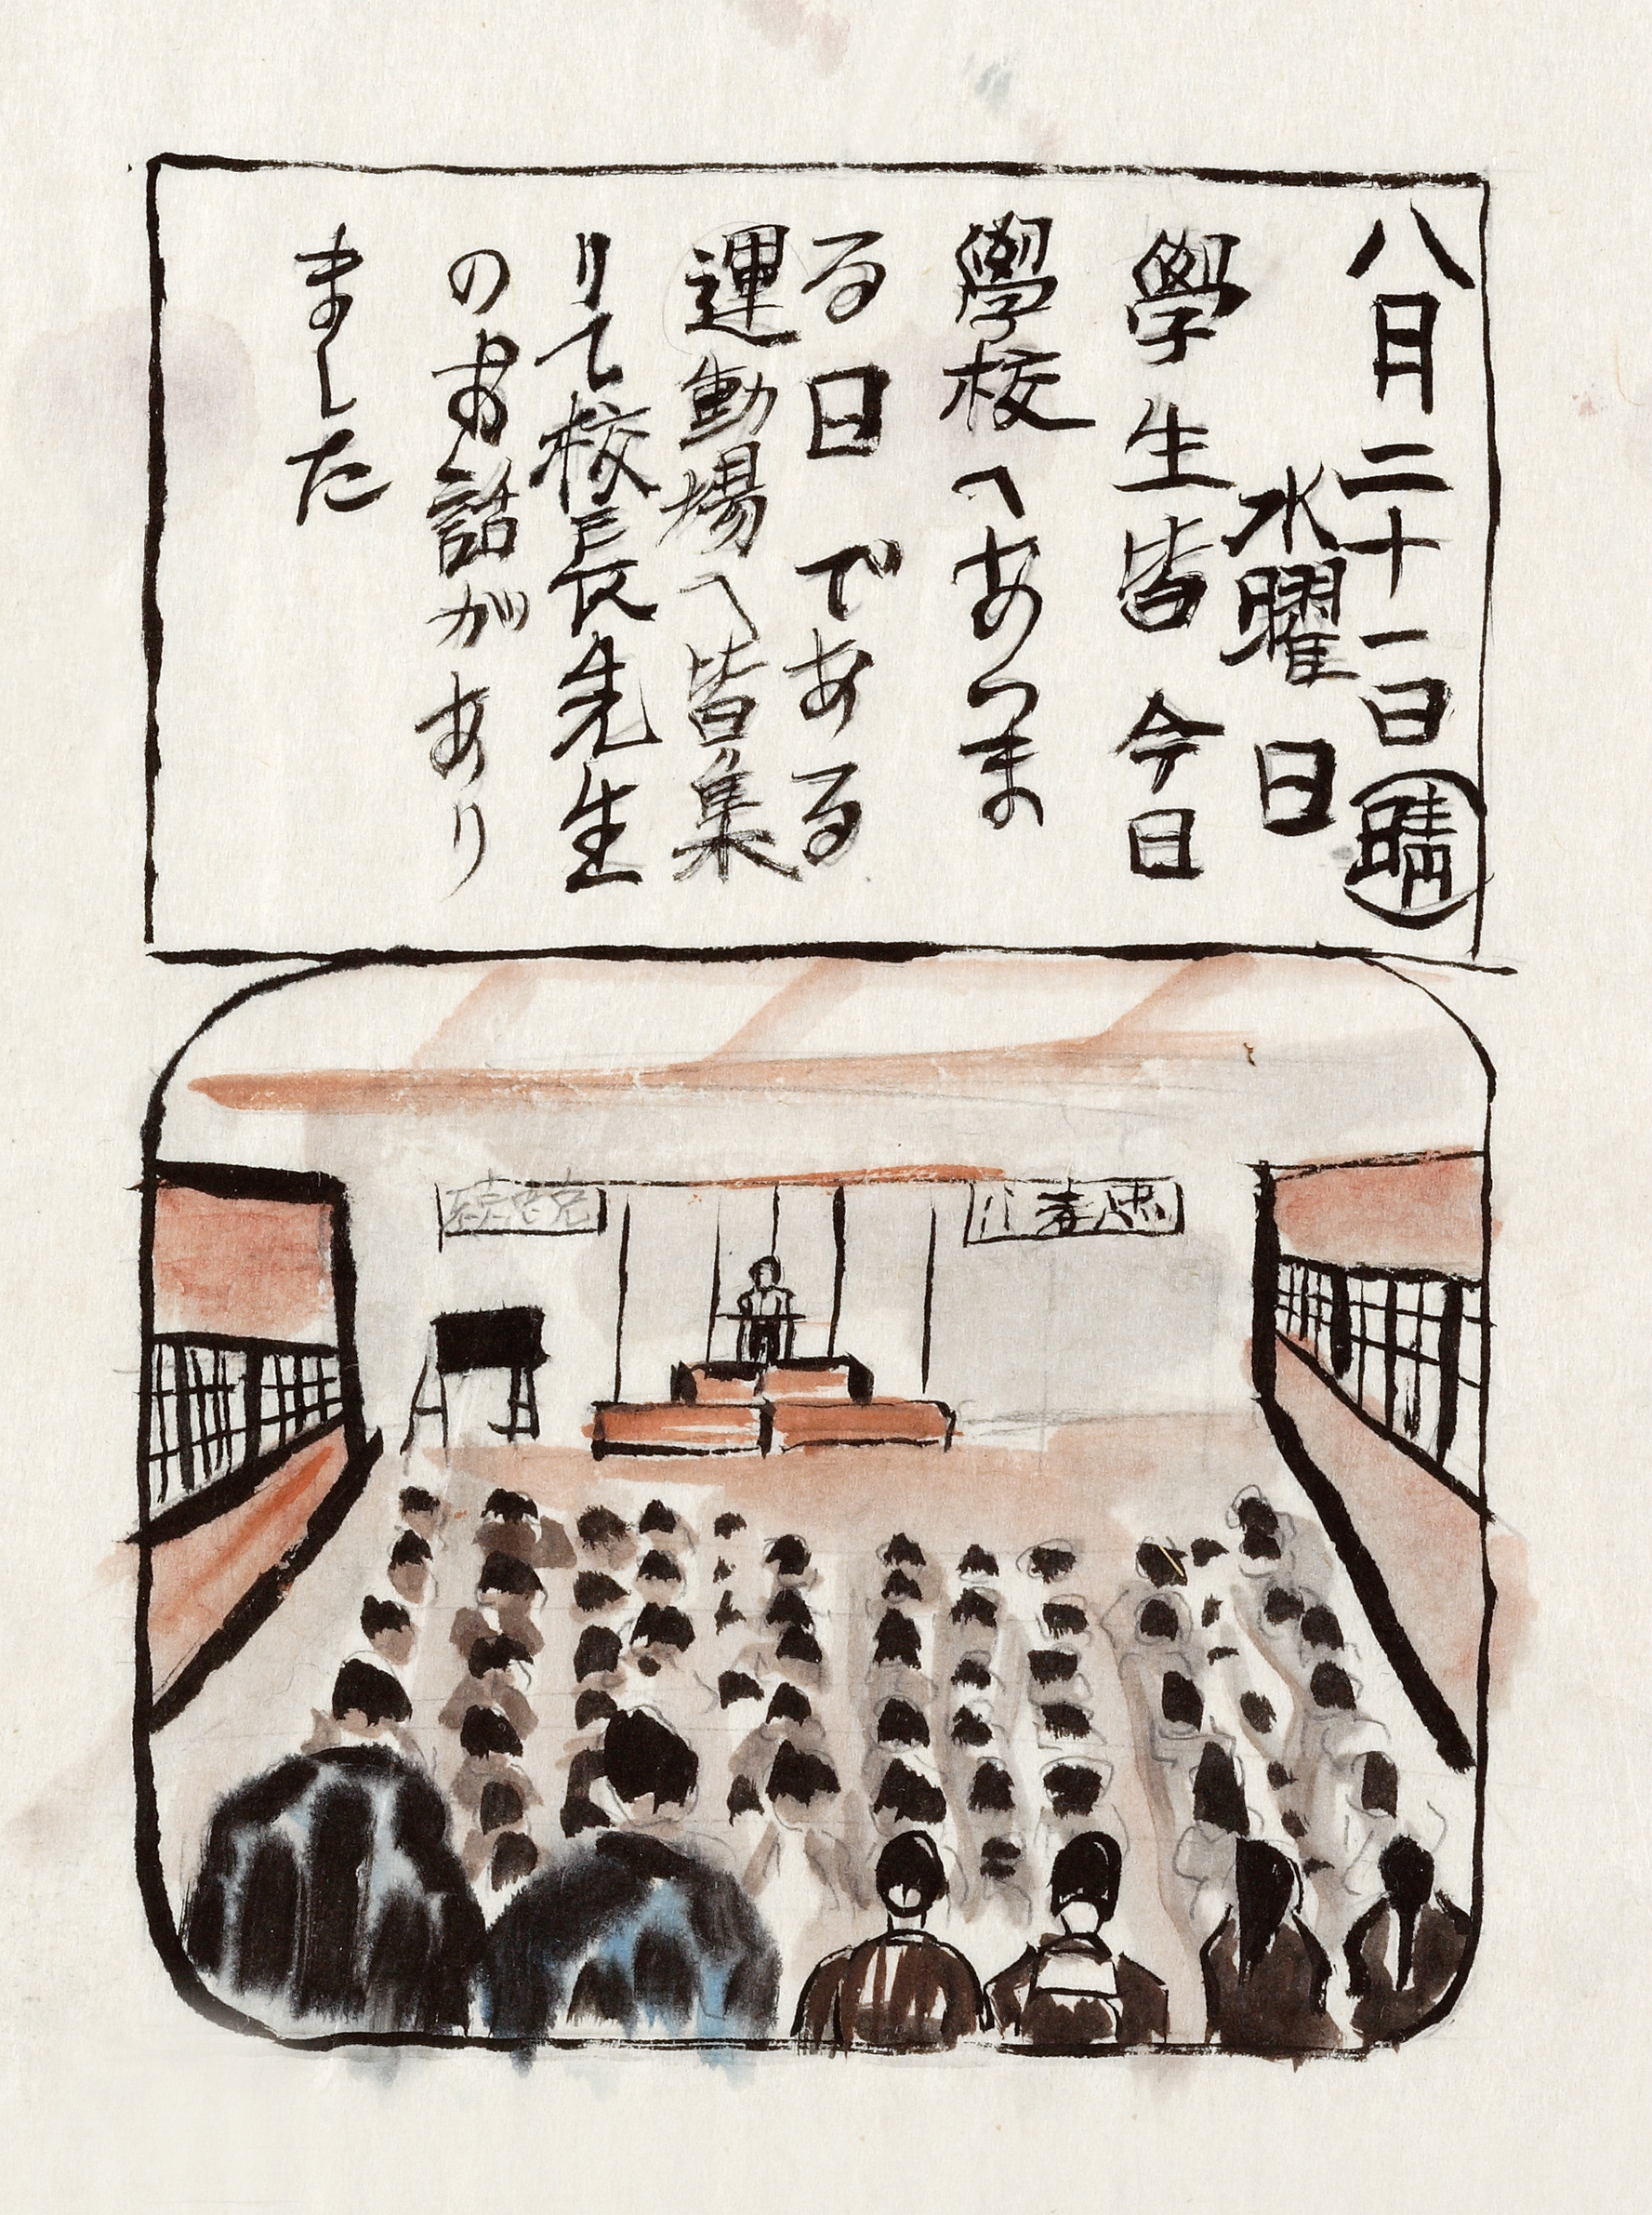 八月二十一日 晴
水曜日
學生皆今日
學校へあつま
る日である
運動場へ皆集
りて校長先生
のお話があり
ました